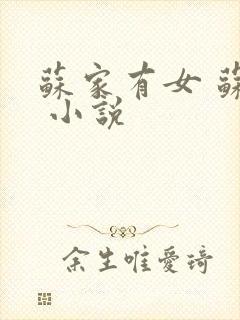 蘇家有女 蘇
小說
余生唯愛琦